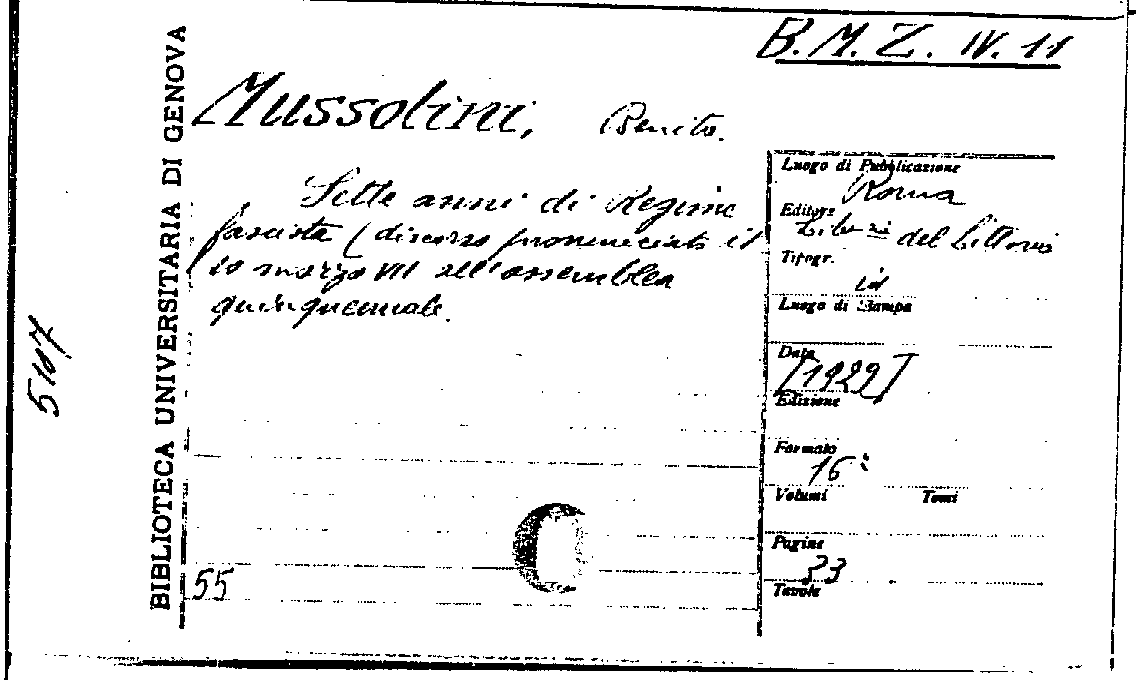 B.M.Z. IV. 11
BIBLIOTECA UNIVERSITARIA DI GENOVA
5107
Mussolini, Benito.
Sette anni di Regime
fascista (discorso pronunciato il
10 marzo VII all'assemblea
quinquennale.
55
Luogo di Pubblicazione
Roma
Editore
del Littorio
Tipogr.
id
Luogo di Stampa
Data
[1929]
Edizione
Formato
16°
Volumi Tomi
Pagine
33
Tavole